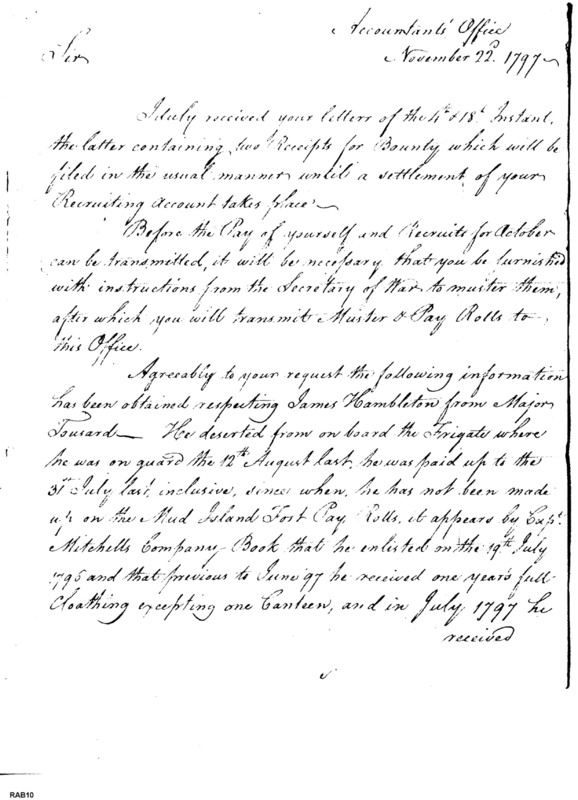 Accountants' Office
Sir
November 22d. 1797
I duly received your letters of the 4th & 18th Instant,
the latter containing two Receipts for Bounty which will be
filed in the usual manner until a settlement of your
Recruiting account takes place.
Before the Pay of yourself and Recruits for October
can be transmitted, it will be necessary that you be furnished
with instructions from the Secretary of War to muster them,
after which you will transmit Muster & Pay Rolls to
this Office.
Agreeably to your request the following information
has been obtained respecting James Hambleton from Major
Tousard — He deserted from on board the Frigate where
he was on guard the 12th August last, he was paid up to the
31st July last, inclusive, since when, he has not been made
up on the Mud Island Fort Pay Rolls, it appears by Capt.
Mitchells Company Book that he enlisted on the 19th July
1795 and that previous to June 97 he received one years full
Cloathing excepting one Canteen, and in July 1797 he
received
RAB10